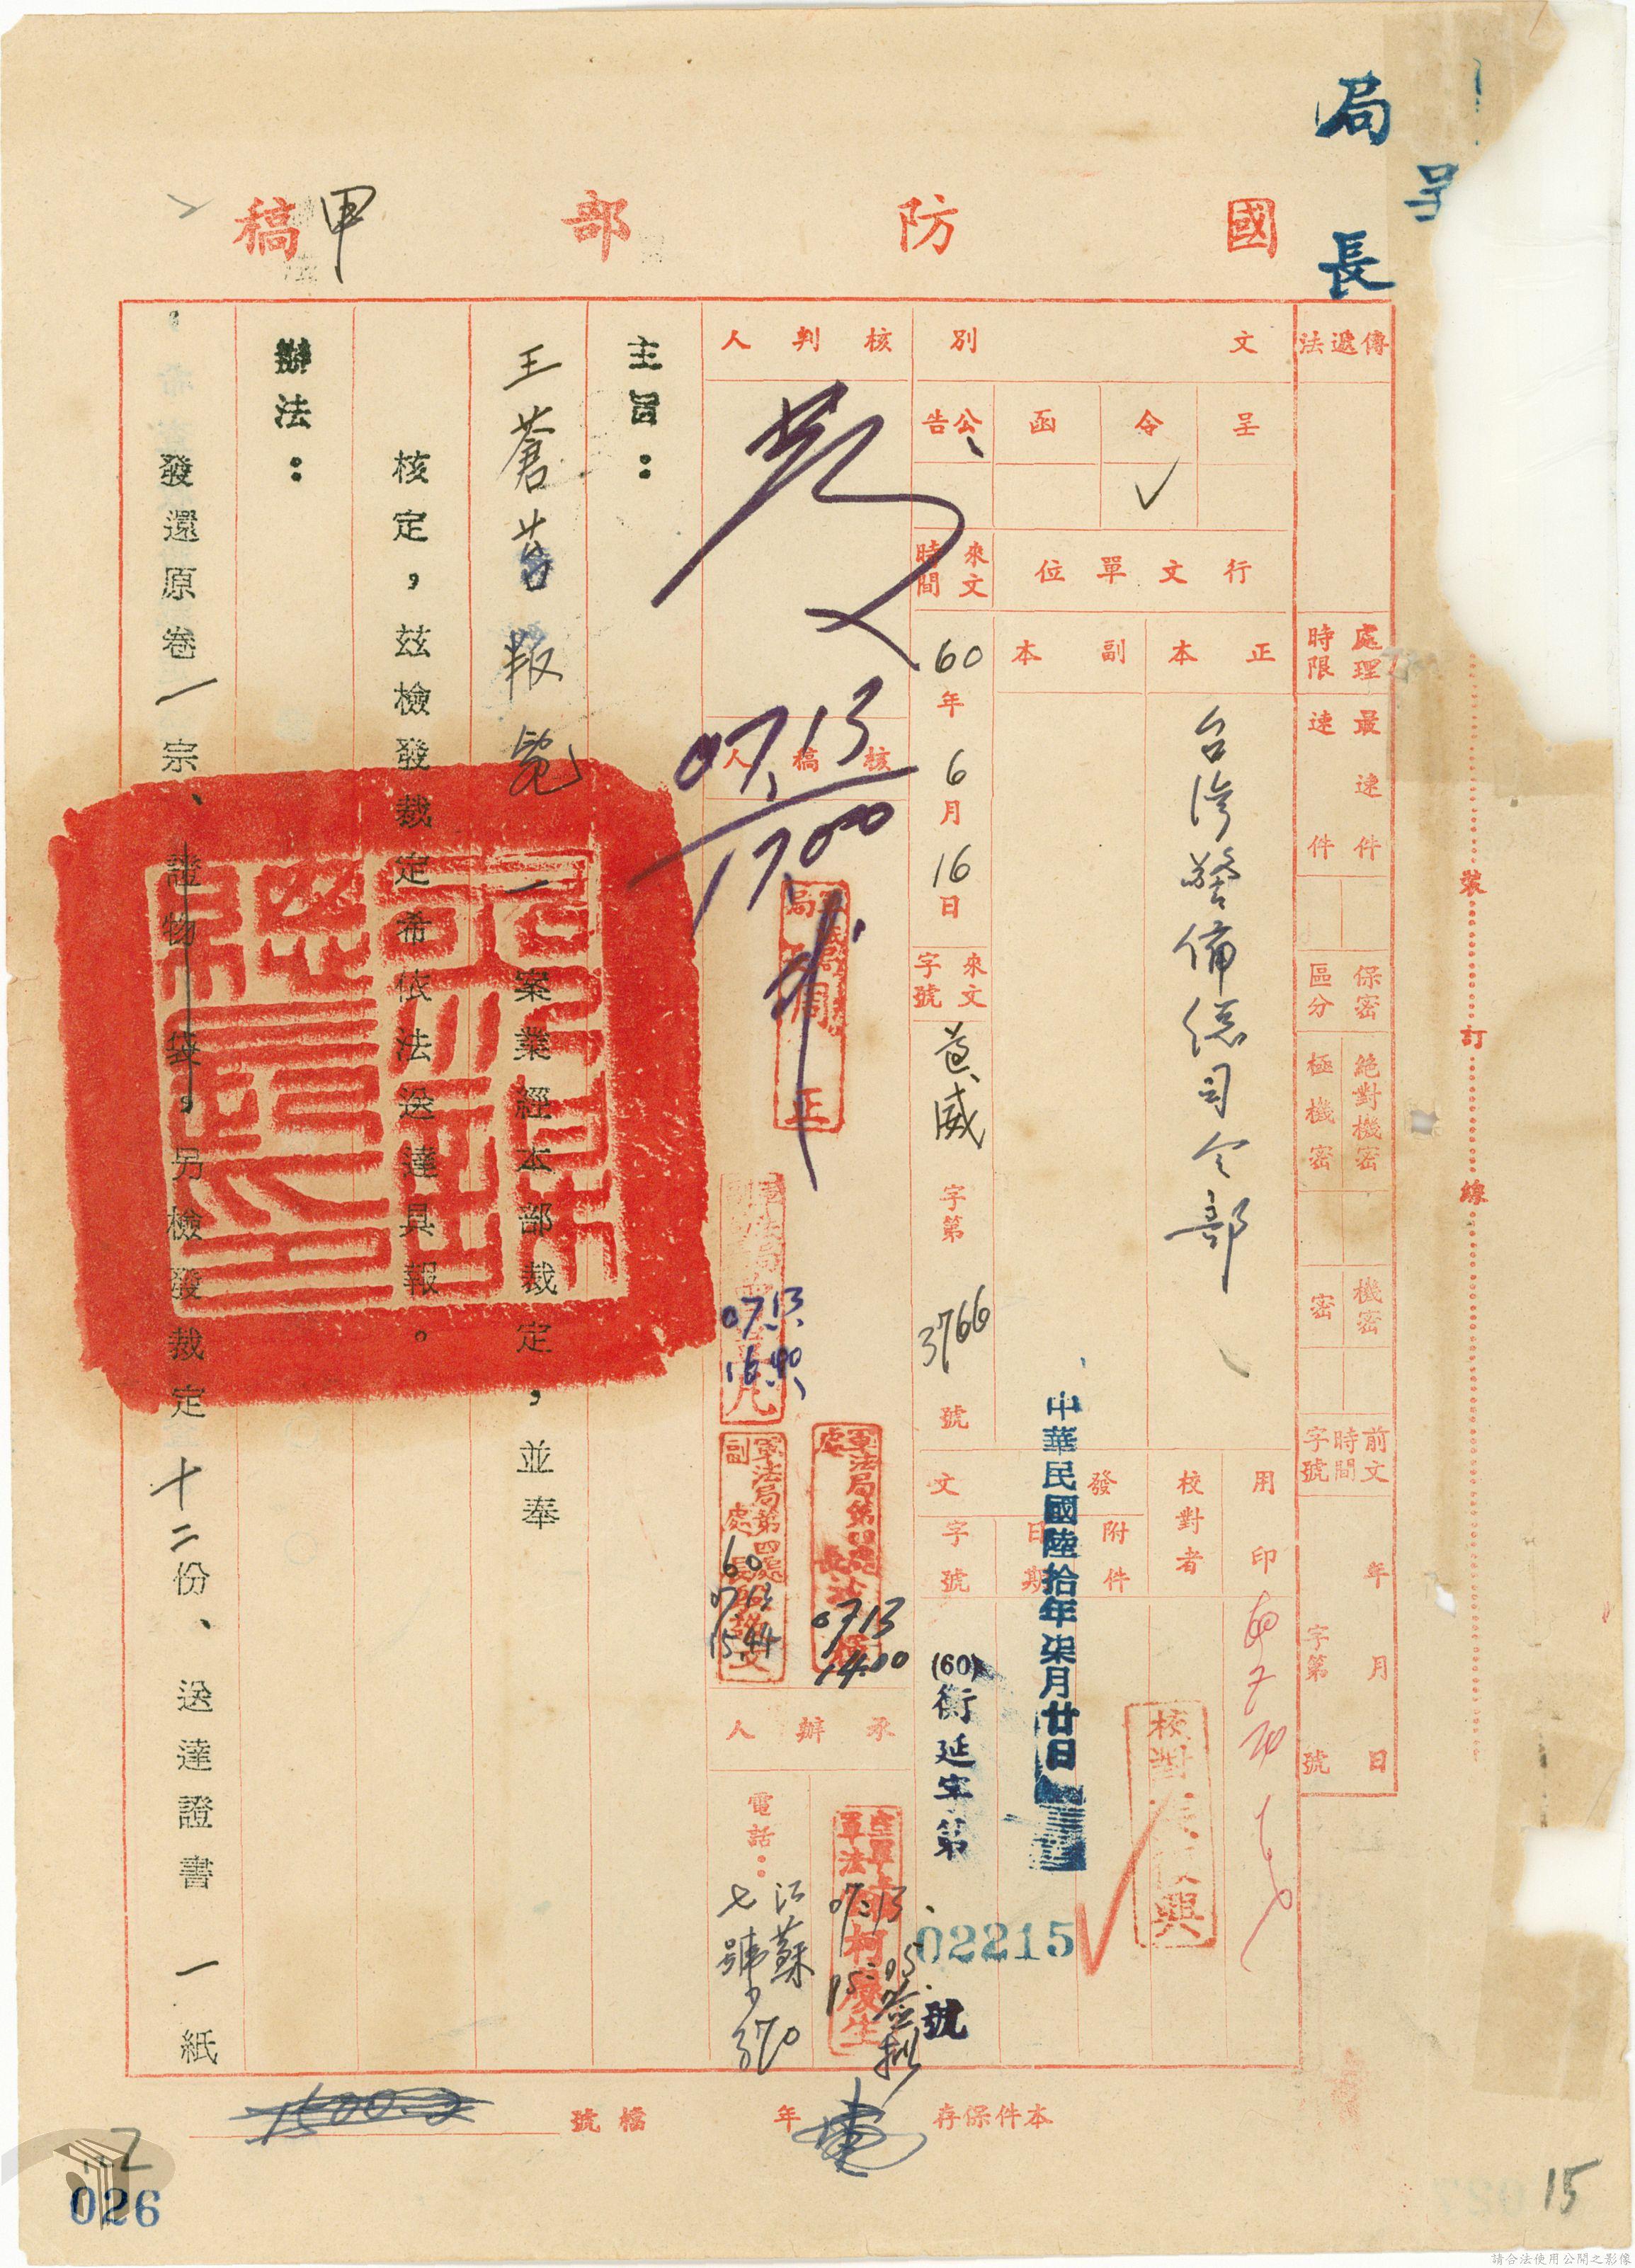 局長
呈
國防部稿
甲
傳遞法
處理時限
最速件
速件
保密區分
絕對機密
極機密
機密
密
前文時間字號
年月日
字第號
文別
呈
令
函
公告
✓
行文單位
正本
副本
台灣警備總司令部
來文時間
60年6月16日
來文字號
字第3766號
用印
校對者
發文
附件
日期
字號
中華民國陸拾年柒月廿日
(60)衡延字第
02215
號
核判人
07.13
17.00
核稿人
07.13
16.40
軍法局第四處副處長
60
07.13
15.44
07.13
14.00
承辦人
07.13
15.05
簽擬
柯慶生
電話：
江蘇
七號
370
主旨：
王蒼
叛亂一案業經本部裁定，並奉
核定，茲檢發裁定希依法送達具報。
辦法：
發還原卷一宗、證物 袋。另檢發裁定十二份、送達證書一紙
裝訂線
本件保存
年
檔號
1500.2
026
15
請合法使用公開之影像